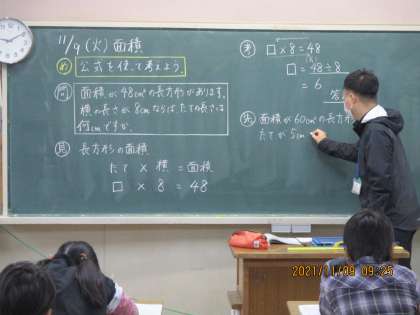 11/9(火) 面積
め 公式を使って考えよう。
問 面積が48cm²の長方形があります。
横の長さが8cmならば、たての長さは
何cmですか。
見 長方形の面積
たて × 横 = 面積
□ × 8 = 48
考 □ × 8 = 48
□ = 48 ÷ 8
= 6
答
面積が60cm²の長方形
たてが5cm
2021/11/09 09:25